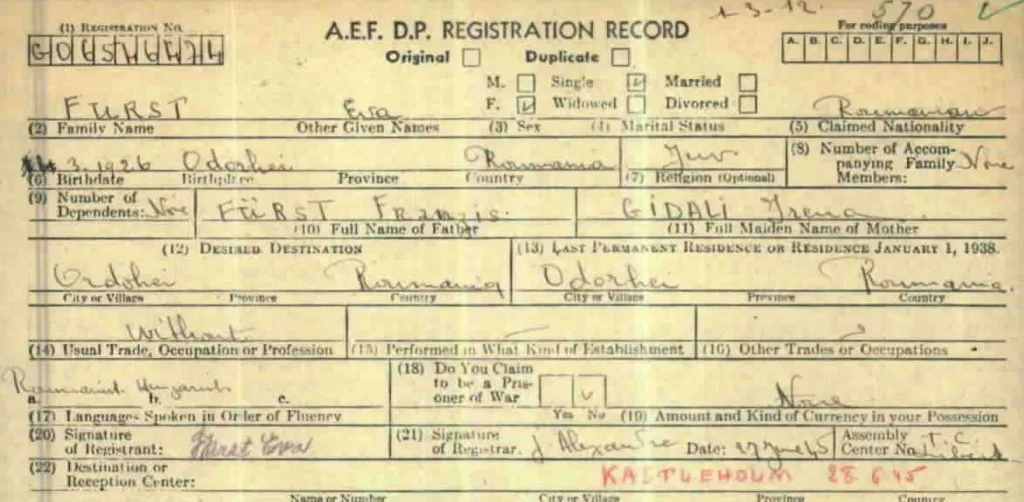 1-3-12. 570
(1) REGISTRATION NO. A.E.F. D.P. REGISTRATION RECORD For coding purposes
Original Duplicate A. B. C. D. E. F. G. H. I. J.
M. Single Married
F. Widowed Divorced
FÜRST Eva Roumanian
(2) Family Name Other Given Names (3) Sex (4) Marital Status (5) Claimed Nationality
3.1926 Odorhei Roumania Juv. (8) Number of Accompanying Family Members: None
(6) Birthdate Birthplace Province Country (7) Religion (Optional)
(9) Number of Dependents: None FÜRST Franzis. GIDALI Irena
(10) Full Name of Father (11) Full Maiden Name of Mother
(12) DESIRED DESTINATION (13) LAST PERMANENT RESIDENCE OR RESIDENCE JANUARY 1, 1938.
Ordohei Roumania Odorhei Roumania.
City or Village Province Country City or Village Province Country
Without
(14) Usual Trade, Occupation or Profession (15) Performed in What Kind of Establishment (16) Other Trades or Occupations
(18) Do You Claim to be a Prisoner of War None
a. b. c.
(17) Languages Spoken in Order of Fluency Yes No (19) Amount and Kind of Currency in your Possession
(20) Signature of Registrant: Fürst Eva (21) Signature of Registrar. J Alexandre Date: 27 June 45 Assembly Center No. T.C.
(22) Destination or Reception Center: KASTLEHOLM 28.6.45
Name or Number City or Village Province Country